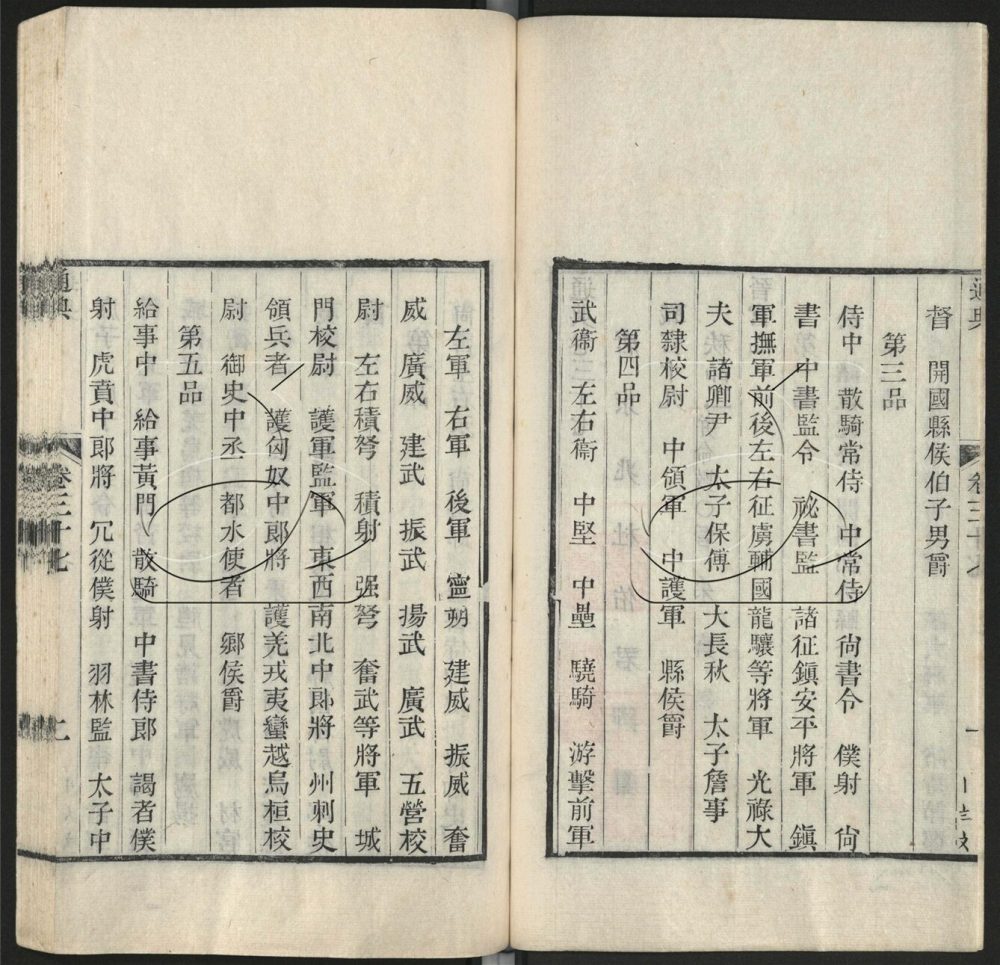 督 開國縣侯伯子男爵
第三品
侍中 散騎常侍 中常侍 尙書令 僕射 尙
書 中書監令 祕書監 諸征鎮安平將軍 鎮
軍撫軍前後左右征虜輔國龍驤等將軍 光祿大
夫 諸卿尹 太子保傅 大長秋 太子詹事
司隸校尉 中領軍 中護軍 縣侯爵
第四品
武衞 左右衞 中堅 中壘 驍騎 游擊前軍
左軍 右軍 後軍 寧朔 建威 振威 奮
威 廣威 建武 振武 揚武 廣武 五營校
尉 左右積弩 積射 强弩 奮武等將軍 城
門校尉 護軍監軍 東西南北中郞將 州刺史
領兵者 護匈奴中郞將 護羌戎夷蠻越烏桓校
尉 御史中丞 都水使者 鄉侯爵
第五品
給事中 給事黃門 散騎 中書侍郞 謁者僕
射 虎賁中郞將 冗從僕射 羽林監 太子中
通典
卷三十七
七